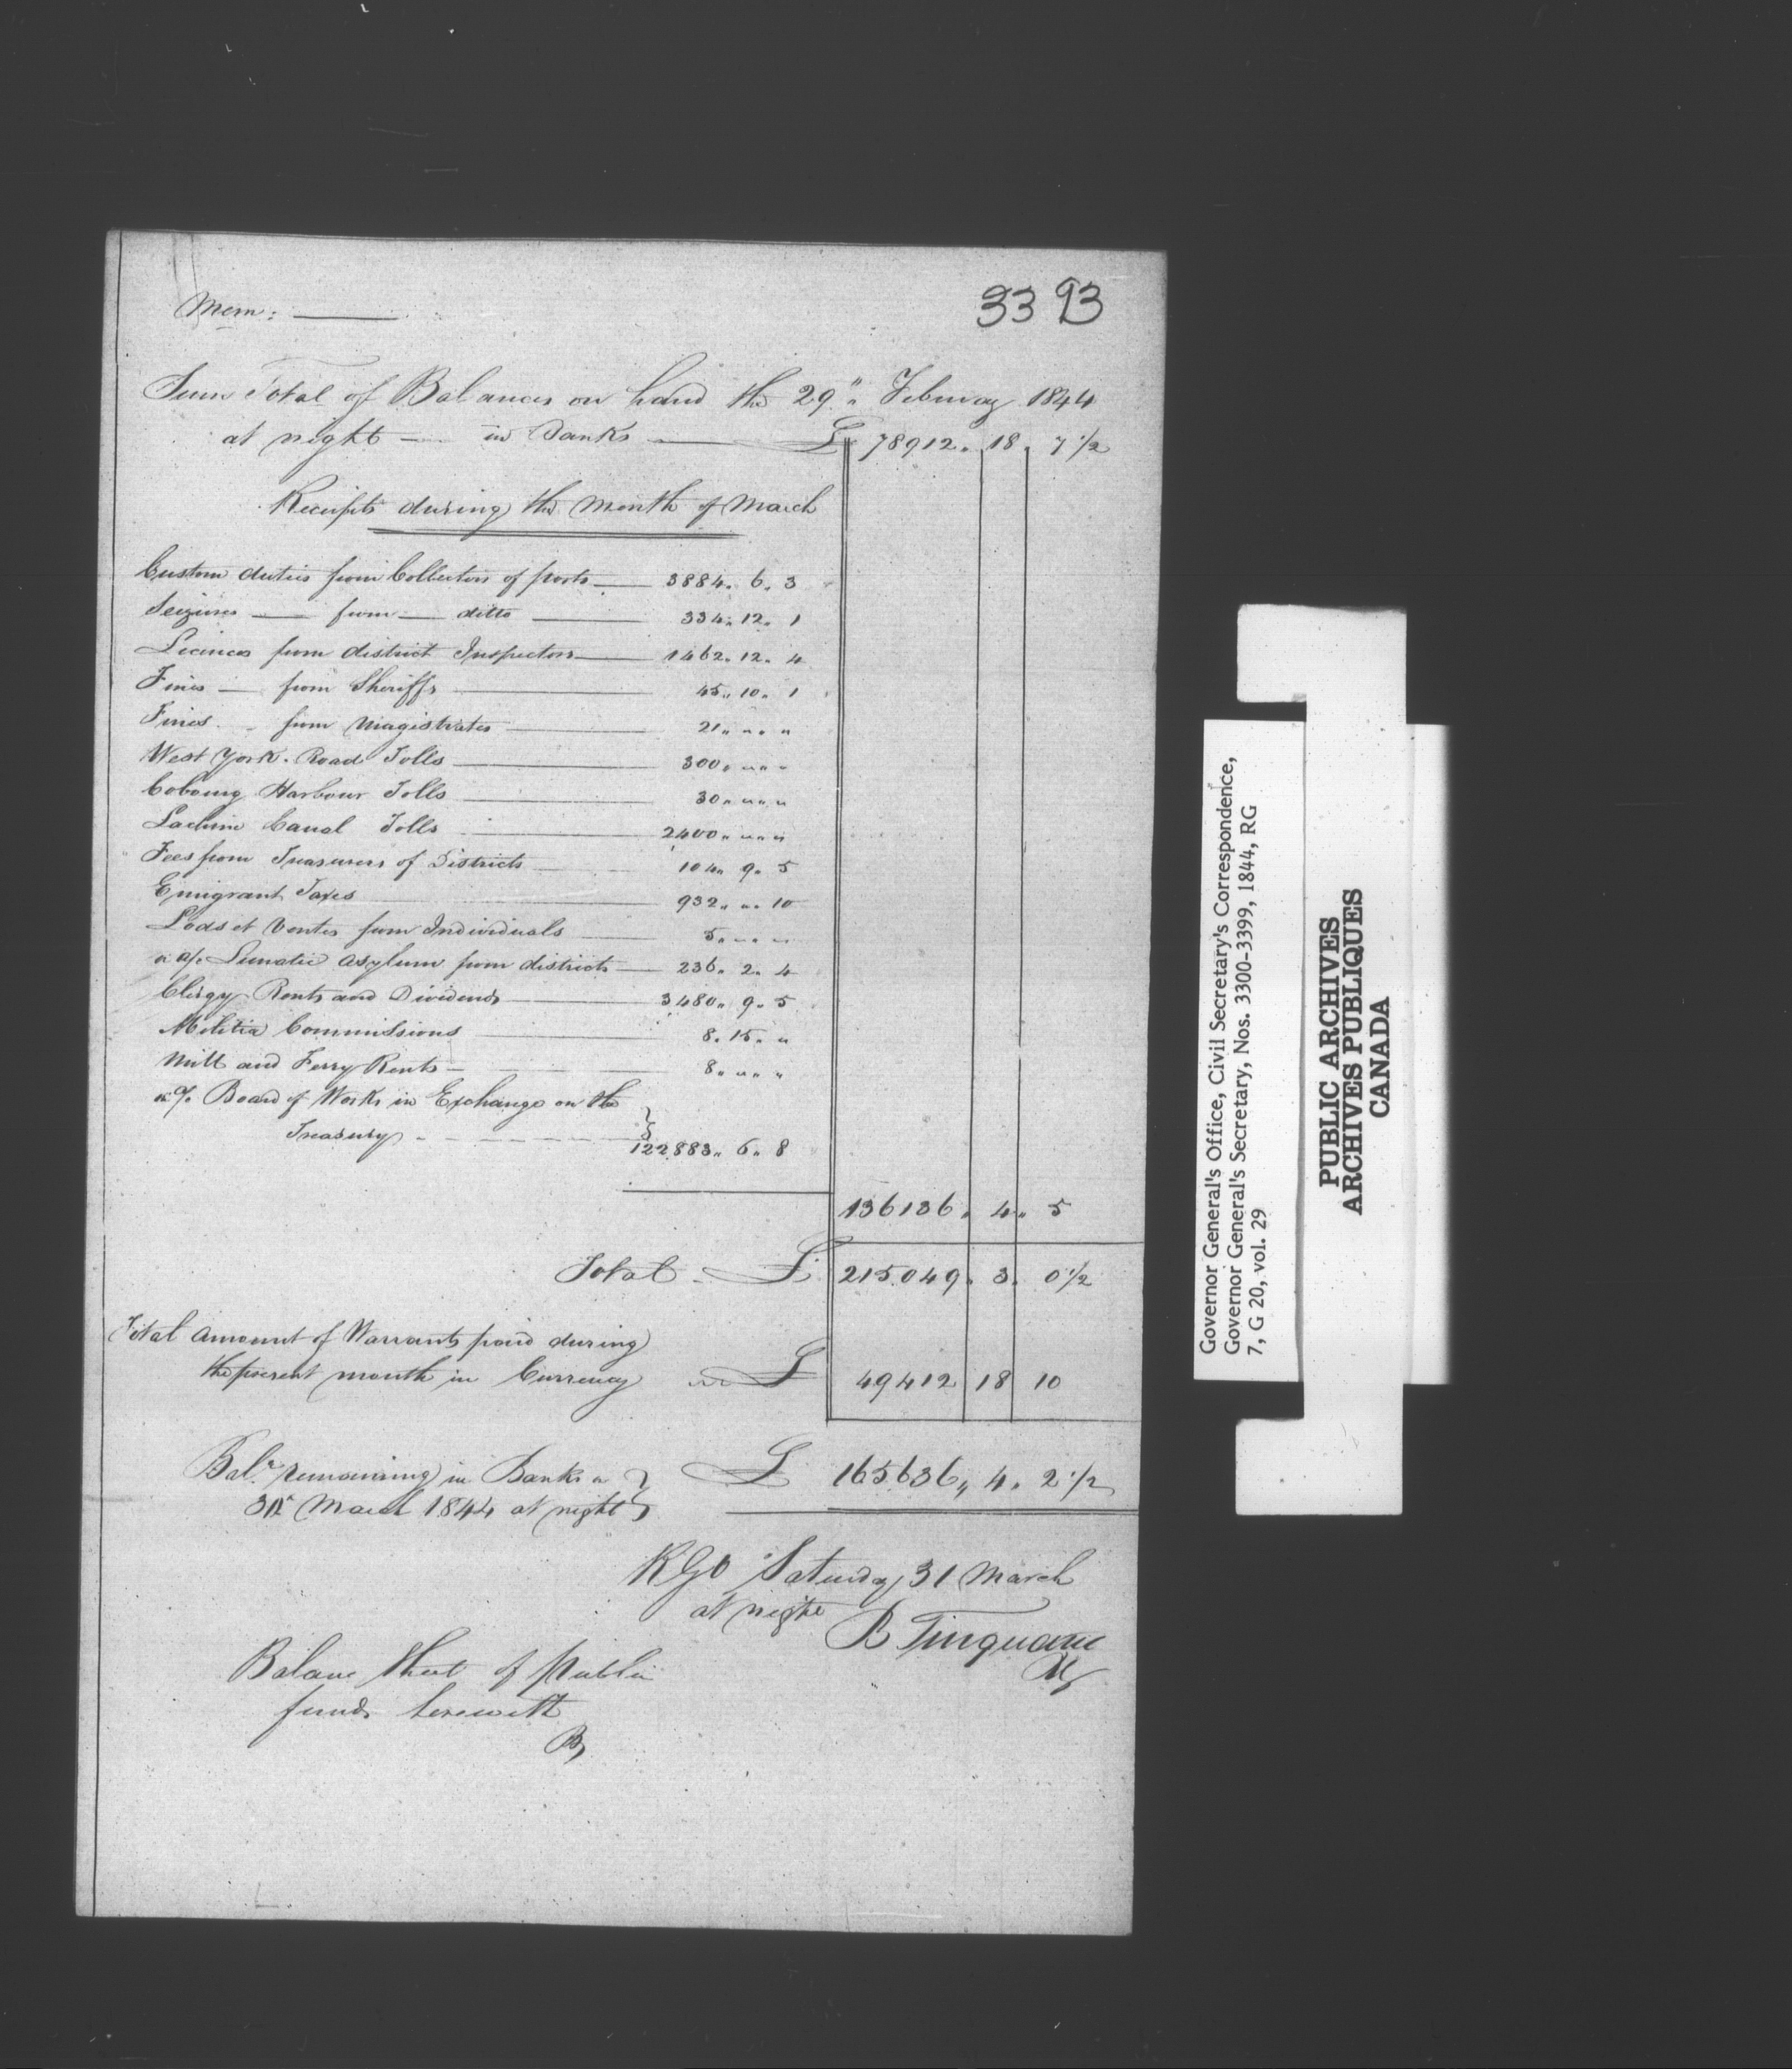 3393
Mem:
Sum Total of Balances on hand the 29" February 1844
at night — in Banks — £ 78912 " 18 " 7 1/2
Receipts during the Month of March
Custom duties from Collectors of ports — 3884 " 6 " 3
Seizures — from — ditto — 334 " 12 " 1
Licences from district Inspectors — 1462 " 12 " 4
Fines — from Sheriffs — 45 " 10 " 1
Fines — from Magistrates — 21 " " " "
West York Road Tolls — 300 " " " "
Cobourg Harbour Tolls — 30 " " " "
Lachine Canal Tolls — 2400 " " " "
Fees from Treasurers of Districts — 104 " 9 " 5
Emigrant Taxes — 932 " " " 10
Lods et Ventes from Individuals — 5 " " " "
on a/c Lunatic Asylum from districts — 236 " 2 " 4
Clergy Rents and Dividends — 3480 " 9 " 5
Militia Commissions — 8 " 15 " "
Mill and Ferry Rents — 8 " " " "
on a/c Board of Works in Exchange on the
Treasury — 122,883 " 6 " 8
136136 " 4 " 5
Total — £ 215.049 " 3 " 0 1/2
Total Amount of Warrants paid during
the present month in Currency £ 49412 18 10
Balce remaining in Banks £ 165.636 " 4 " 2 1/2
31st March 1844 at night
RGO Saturday 31 March
at night
B Turquand
Balance Sheet of public
funds herewith
B
Governor General's Office, Civil Secretary's Correspondence,
Governor General's Secretary, Nos. 3300-3399, 1844, RG
7, G 20, vol. 29
PUBLIC ARCHIVES
ARCHIVES PUBLIQUES
CANADA